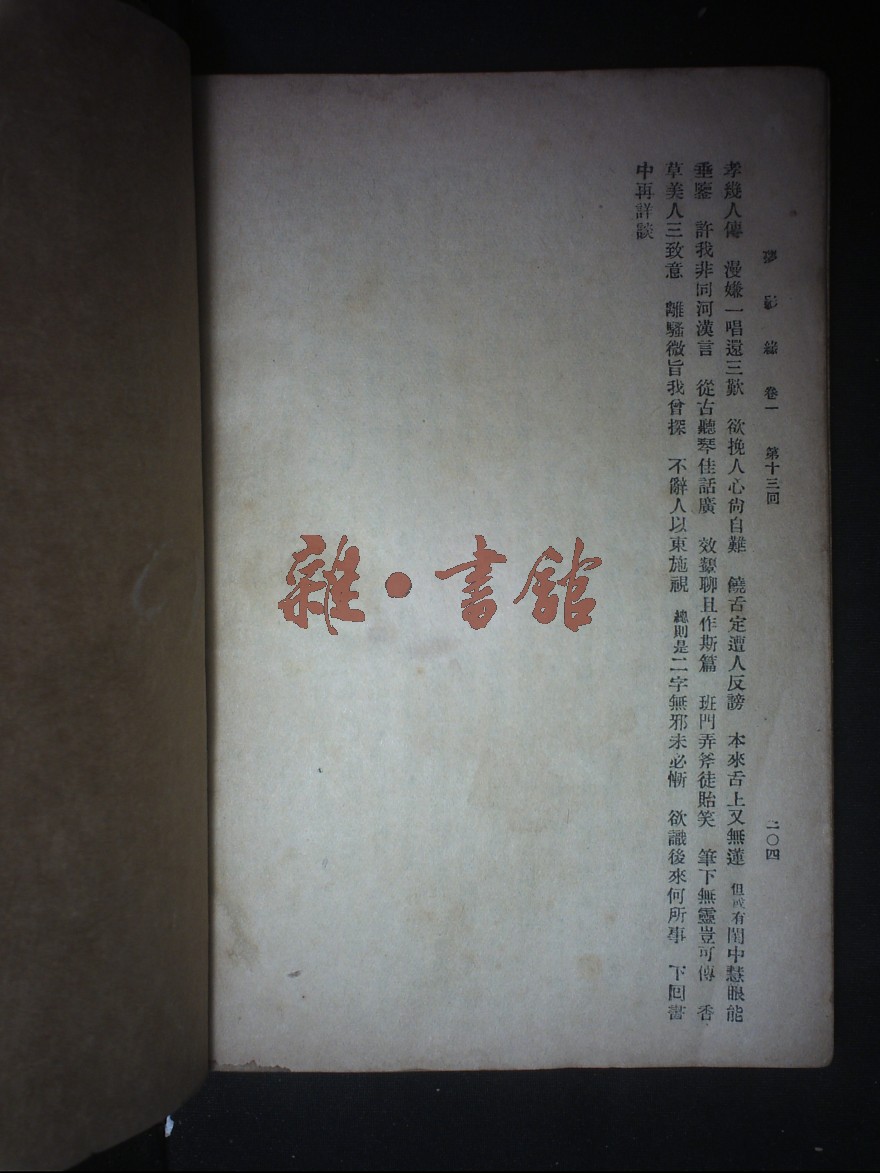 緣 卷一 第十三回 二〇四
孝幾人傳 漫嫌一唱還三歎 欲挽人心尙自難 饒舌定遭人反謗 本來舌上又無蓮 但或有閨中慧眼能
垂鑒 許我非同河漢言 從古聽琴佳話廣 效顰聊且作斯篇 班門弄斧徒貽笑 筆下無靈豈可傳 香
草美人三致意 離騷微旨我曾探 不辭人以東施視 總則是二字無邪未必慚 欲識後來何所事 下回書
中再詳談
雜·書館